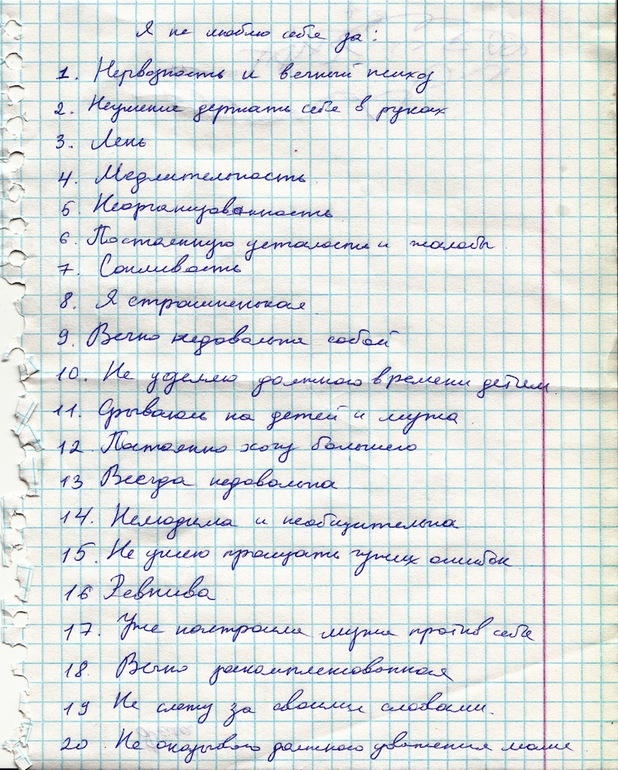 Я не люблю себя за:
1. Нервозность и вечный психоз
2. Неумение держать себя в руках
3. Лень
4. Медлительность
5 Неорганизованность
6. Постоянную усталость и жалобы
7. Сонливость
8. Я страшненькая
9. Вечно недовольна собой
10. Не уделяю должного времени детям.
11. Срываюсь на детей и мужа
12. Постоянно хочу большего
13 Всегда недовольна
14. Нелюдима и необщительна
15. Не умею прощать чужих ошибок
16 Ревнива
17. Уже настроила мужа против себя
18. Вечно закомплексованная
19 Не слежу за своими словами.
20. Не оказываю должного уважения маме.